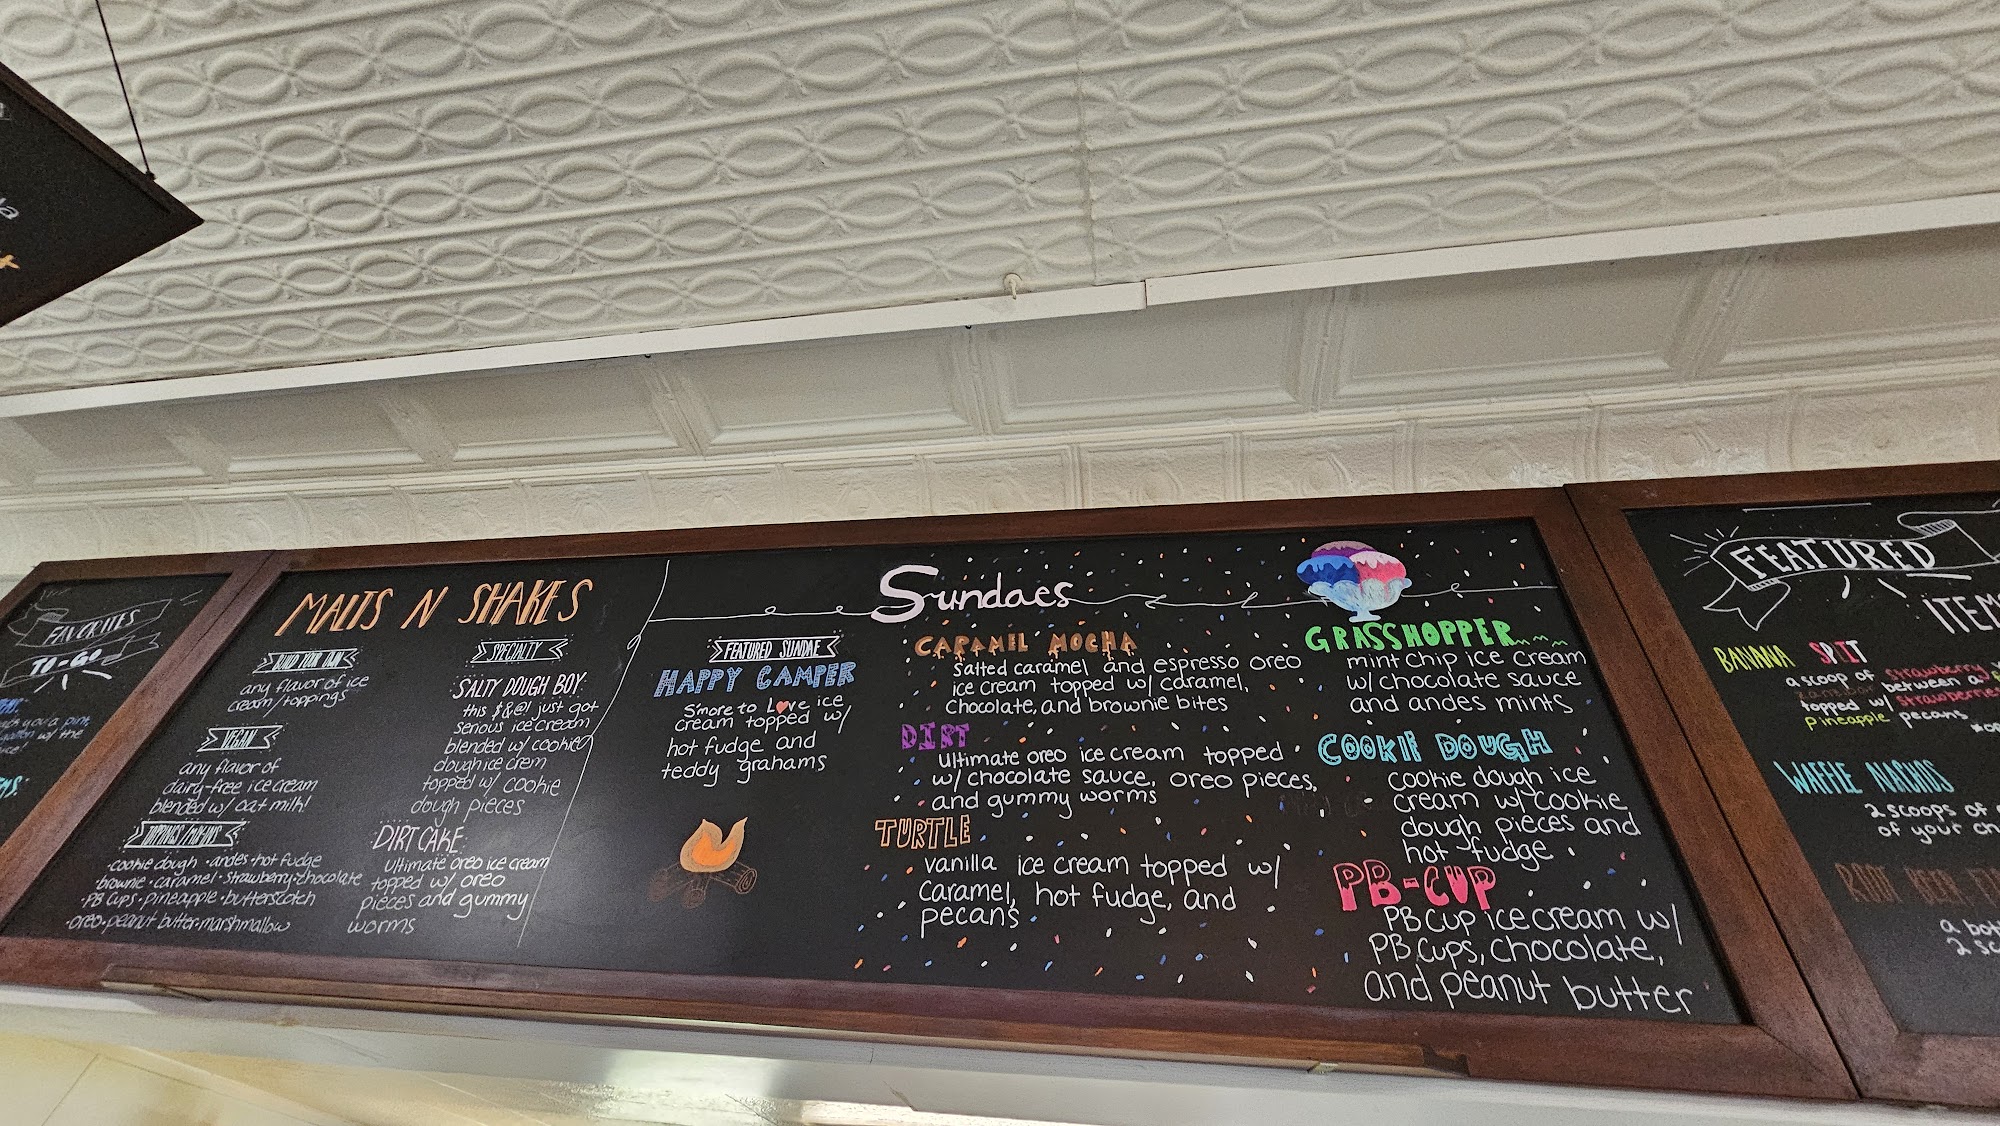 FAVORITES
TO-GO
MALTS N SHAKES
BUILD YOUR OWN
any flavor of ice
cream/toppings
VEGAN
any flavor of
dairy-free ice cream
blended w/ oat milk!
TOPPINGS/MIX-INS
·cookie dough ·andes·hot fudge
·brownie·caramel·strawberry·chocolate
·PB cups·pineapple·butterscotch
·oreo·peanut butter·marshmallow
SPECIALTY
SALTY DOUGH BOY:
this $&@! just got
serious ice cream
blended w/ cookie
dough ice crem
topped w/ cookie
dough pieces
DIRT CAKE:
Ultimate oreo ice cream
topped w/ oreo
pieces and gummy
worms
Sundaes
FEATURED SUNDAE
HAPPY CAMPER
S'more to Love ice
cream topped w/
hot fudge and
teddy grahams
CARAMEL MOCHA
Salted caramel and espresso oreo
ice cream topped w/ caramel,
chocolate, and brownie bites
DIRT
Ultimate oreo ice cream topped
w/ chocolate sauce, oreo pieces,
and gummy worms
TURTLE
vanilla ice cream topped w/
caramel, hot fudge, and
pecans
GRASSHOPPER
mint chip ice cream
w/ chocolate sauce
and andes mints
COOKIE DOUGH
cookie dough ice
cream w/ cookie
dough pieces and
hot fudge
PB-CUP
PB Cup ice cream w/
PB cups, chocolate,
and peanut butter
FEATURED
ITEMS
BANANA SPLIT
a scoop of strawberry
between a
topped w/ strawberries
pineapple pecans
WAFFLE NACHOS
2 scoops of
of your
ROOT BEER
a
2